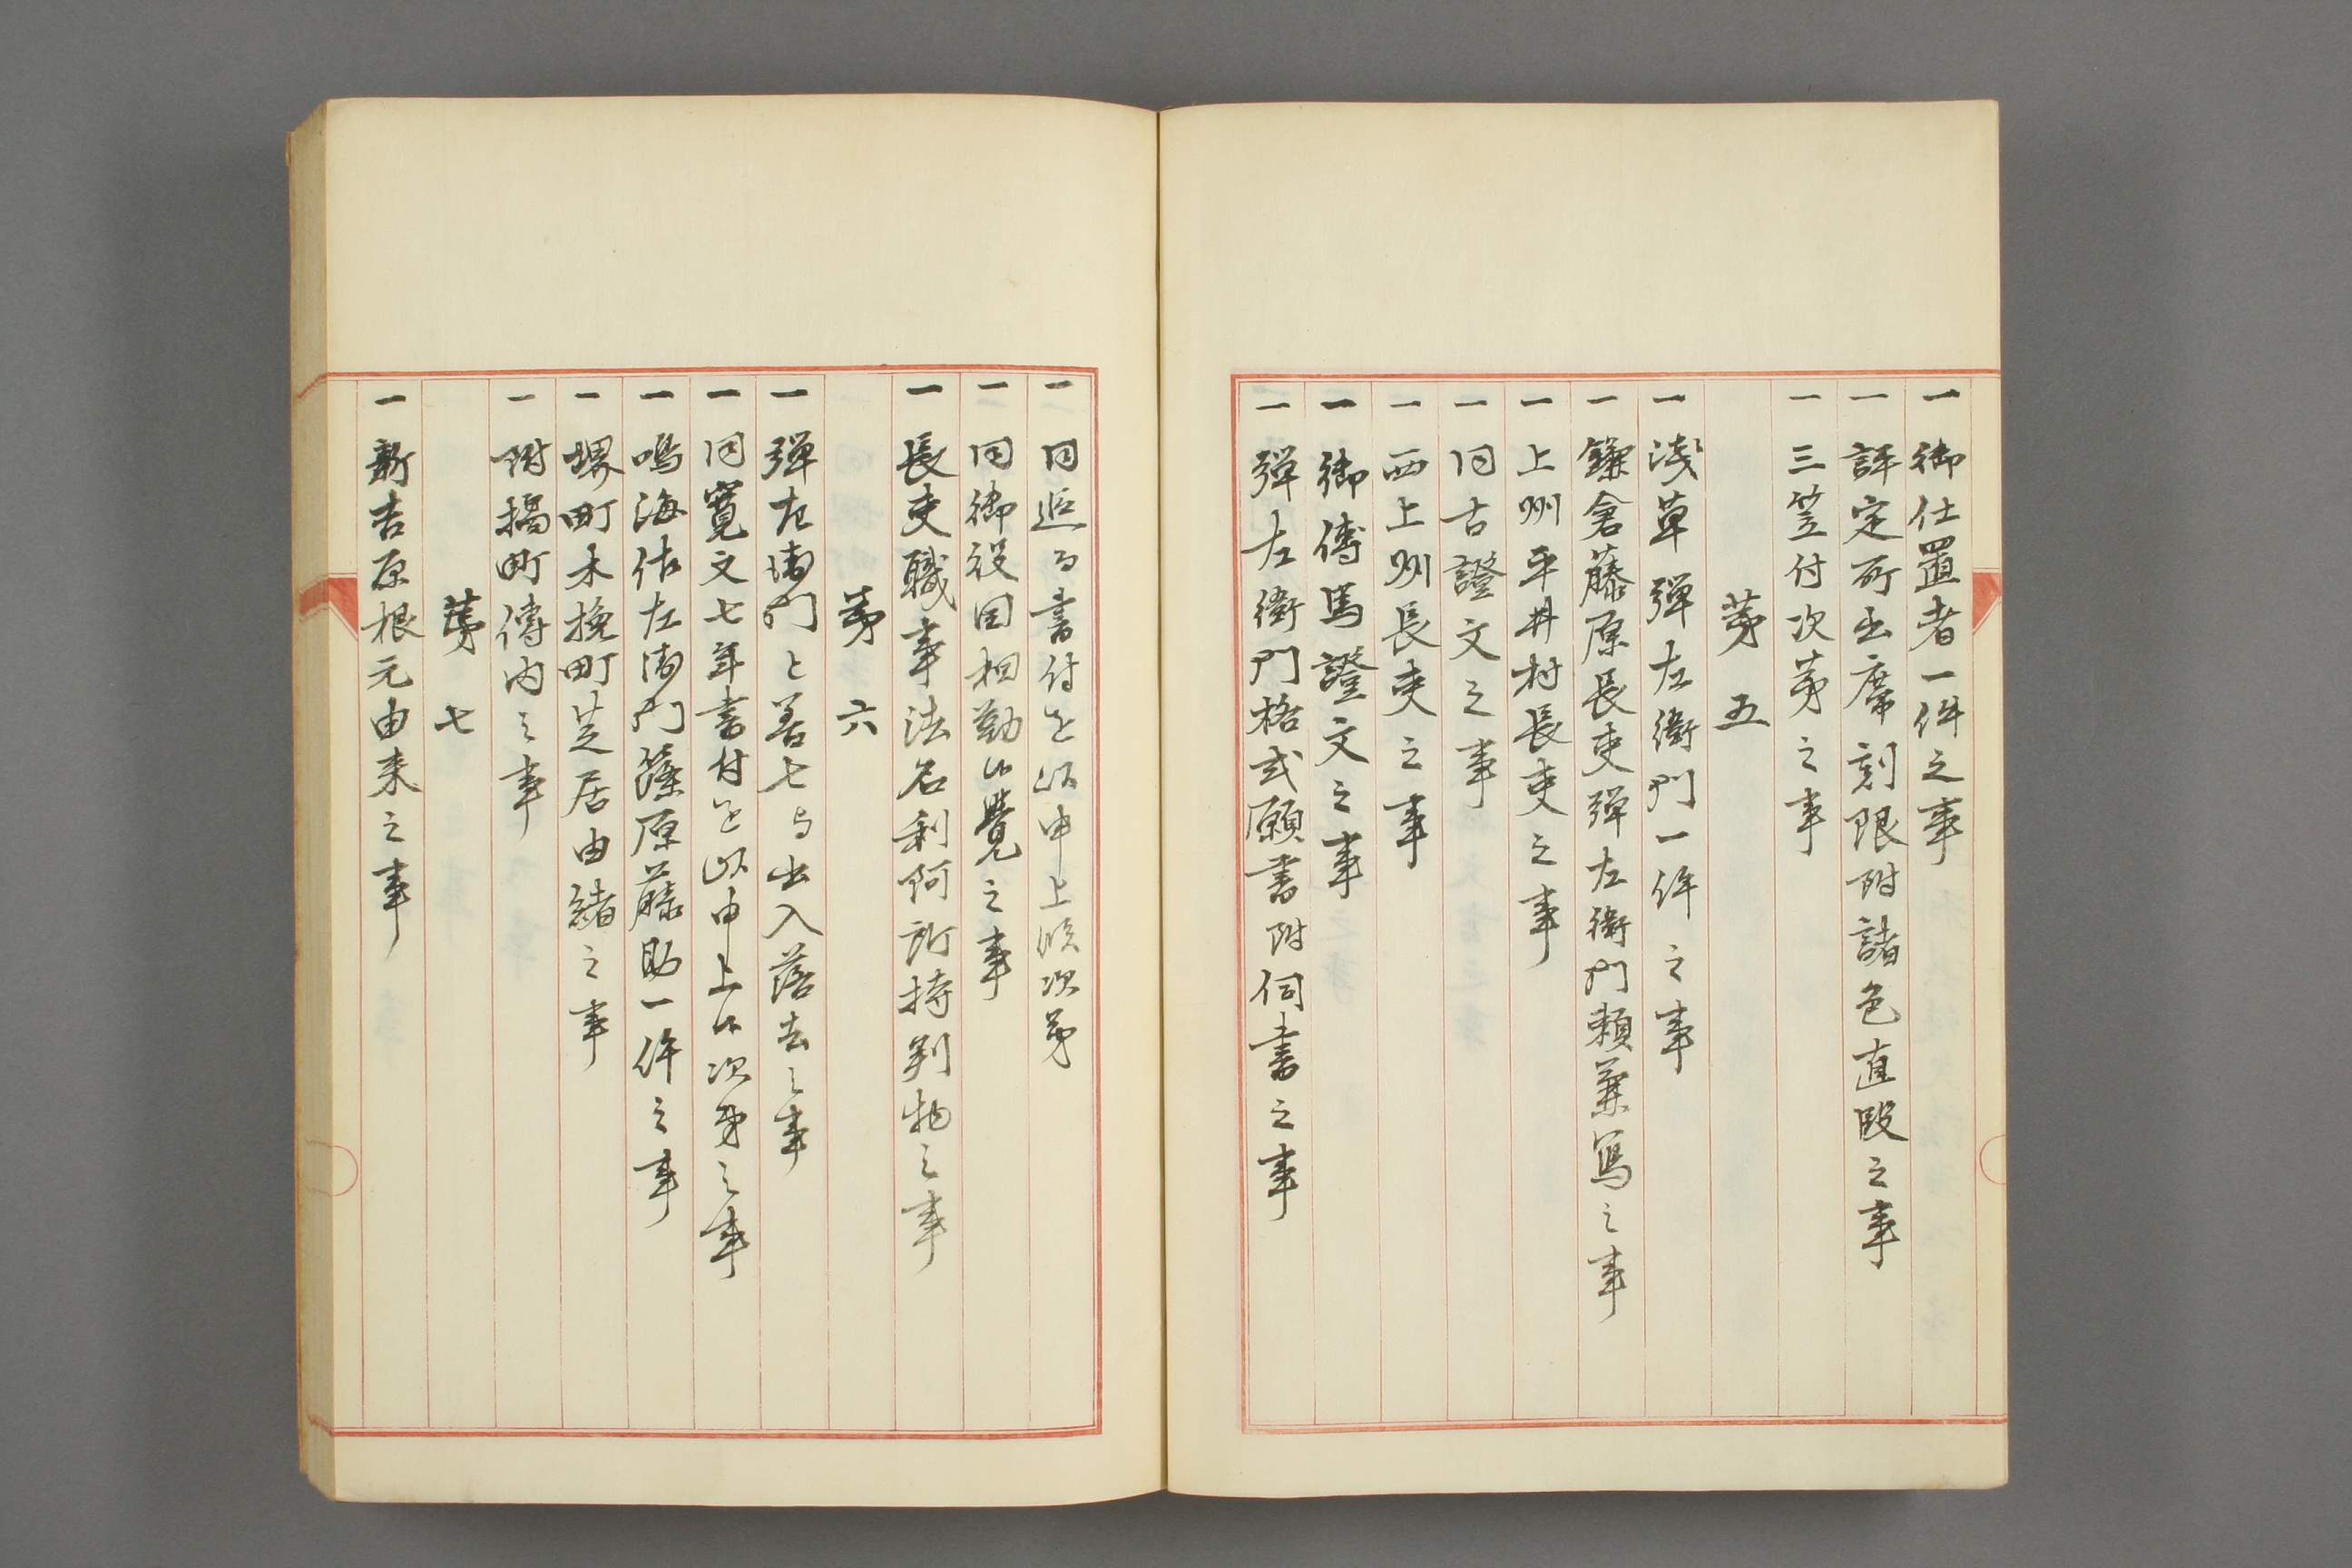 一 御仕置者一件之事
一 評定所出席刻限附諸色直段之事
一 三笠付次第之事
第五
一 浅草弾左衛門一件之事
一 鎌倉藤原長吏弾左衛門頼兼写之事
一 上州平井村長吏之事
一 同古證文之事
一 西上州長吏之事
一 御傳馬證文之事
一 弾左衛門格式願書附伺書之事
一 同返る書付を以申上候次第
一 同御役目相勤候覺之事
一 長吏職事法名利阿所持判物之事
第六
一 弾左衛門と善七与出入落去之事
一 同寛文七年書付を以申上候次第之事
一 鳴海佐左衛門藤原藤助一件之事
一 堺町木挽町芝居由緒之事
一 附揚町傳内之事
第七
一 新吉原根元由来之事